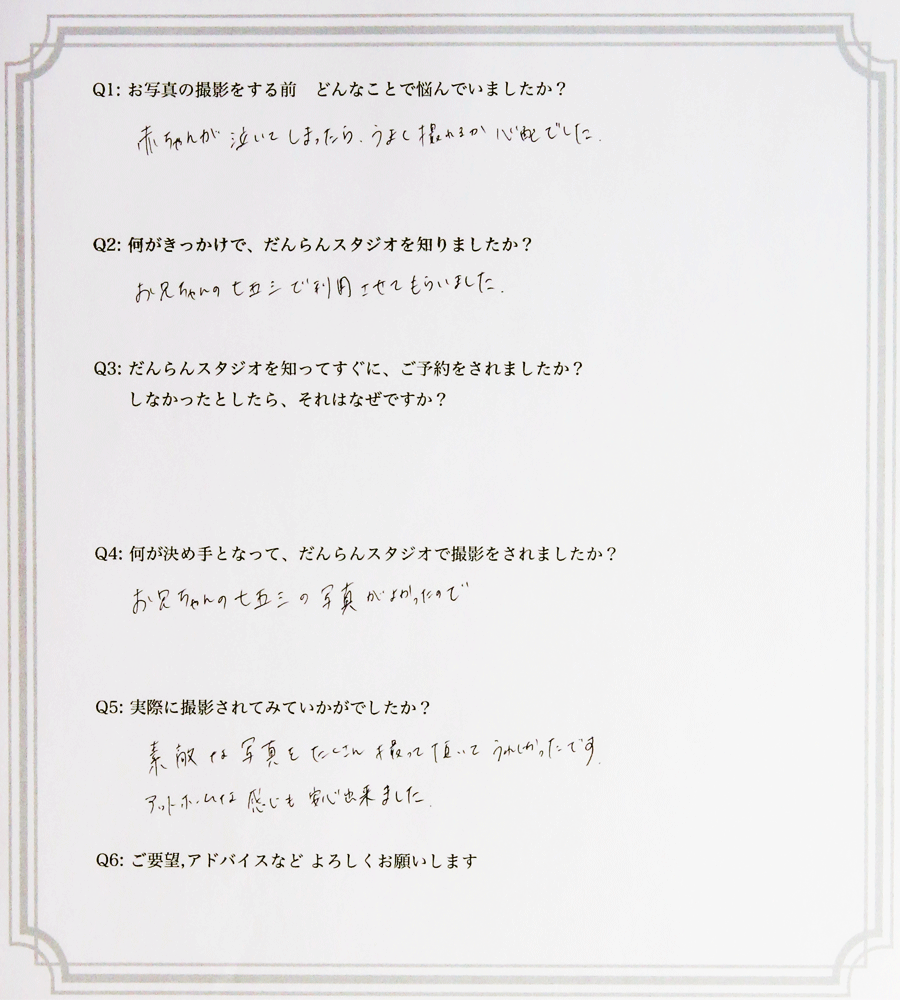 Q1: お写真の撮影をする前　どんなことで悩んでいましたか？
赤ちゃんが泣いてしまったら、うまく撮れるか心配でした.
Q2: 何がきっかけで、だんらんスタジオを知りましたか？
お兄ちゃんの七五三で利用させてもらいました.
Q3: だんらんスタジオを知ってすぐに、ご予約をされましたか？
しなかったとしたら、それはなぜですか？
Q4: 何が決め手となって、だんらんスタジオで撮影をされましたか？
お兄ちゃんの七五三の写真がよかったので
Q5: 実際に撮影されてみていかがでしたか？
素敵な写真をたくさん撮って頂いてうれしかったです.
アットホームな感じも安心出来ました.
Q6: ご要望,アドバイスなど よろしくお願いします